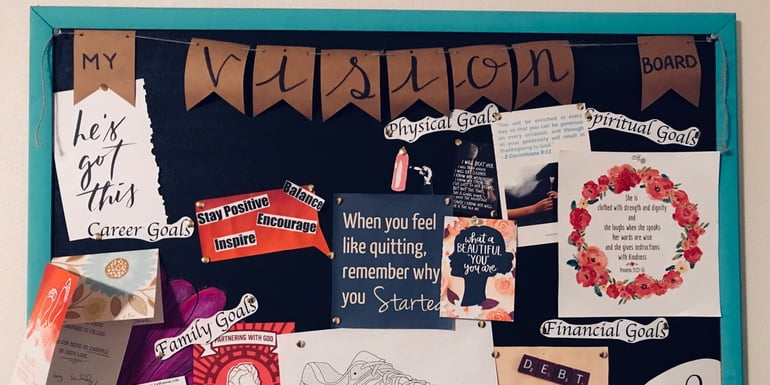 MY
vision
BOARD
he's
got
this
Career Goals
Physical Goals
Spiritual Goals
"You will be enriched in every
way so that you can be generous
on every occasion, and through
us your generosity will result in
thanksgiving to God."
2 Corinthians 9:11
Stay Positive
Balance
Encourage
Inspire
When you feel
like quitting,
remember why
you Started
what a
BEAUTIFUL
"YOU"
you are
She is
clothed with strength and dignity
and
she laughs when she speaks
Her words are wise
and she gives instructions
with kindness
Proverbs 31:25-26
Family Goals
PARTNERING WITH GOD
Financial Goals
DEBT